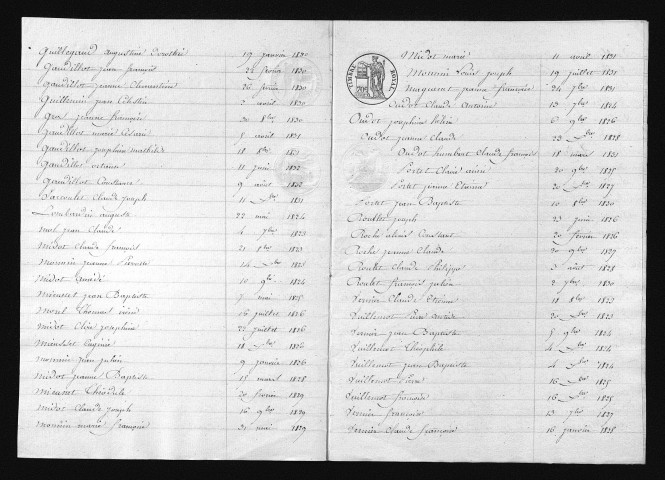 Guillegaud augustine Dorothée 19 janvier 1830
Gaudillot jean françois 22 février 1830
Gaudillot jeanne Clementine 26 février 1830
Guillemin jean Célestin 2 avril 1830
Gros jeanne françoise 30 8bre 1830
Gaudillot marie Césari 5 avril 1831
Gaudillot josephine mathilde 18 8bre
Gaudillot victoire 11 juin 1832
Gaudillot Constance 9 avril 1833
Claude joseph 11 Xbre 1831
auguste 22 mai 1824
mol jean Claude 4 7bre 1823
midot Claude françois 21 8bre 1823
monnin jeanne Pierrette 14 Xbre 1823
midot amédé 10 9bre 1824
mieusset jean Baptiste 7 mai 1825
Thomas 16 juillet 1826
midot Cléo josephine 22 juillet 1826
mieusset 18 Xbre 1826
monnin jean julien 9 janvier 1826
midot jeanne Baptiste 15 mars 1828
mieusset Théodule 20 février 1829
midot Claude joseph 16 9bre 1829
monnin marie françoise 31 mai 1829
TIMBRE ROYAL
Midot marie 11 avril 1831
Monnin Louis joseph 19 juillet 1831
Maguenet jeanne françoise 24 7bre 1831
Oudot Claude Antoine 13 7bre 1824
Oudot josephine 6 9bre 1826
Oudot jeanne Claude 23 Xbre 1828
Oudot humbert Claude françois 18 mars 1831
Portet Claire aimée 20 9bre 1825
Portet jeanne Etienne 20 Xbre 1827
Portet jean Baptiste 10 8bre 1830
Roullet joseph 23 juin 1826
Roche alexis Constant 20 février 1826
Roche jeanne Claude 20 9bre 1827
Roulet Claude Philippe 3 août 1828
Roulet françois julien 2 7bre 1830
Vernier Claude Etienne 11 8bre 1823
Vuillemot 20 Xbre 1823
Vernier jean Baptiste 5 9bre 1824
Vuillemot Théophile 4 Xbre 1824
Vuillemot jean Baptiste 4 Xbre 1824
Vuillemot 16 Xbre 1825
Vuillemot françoise 16 Xbre 1825
Vernier françoise 13 7bre 1827
Vernier Claude françois 16 janvier 1828